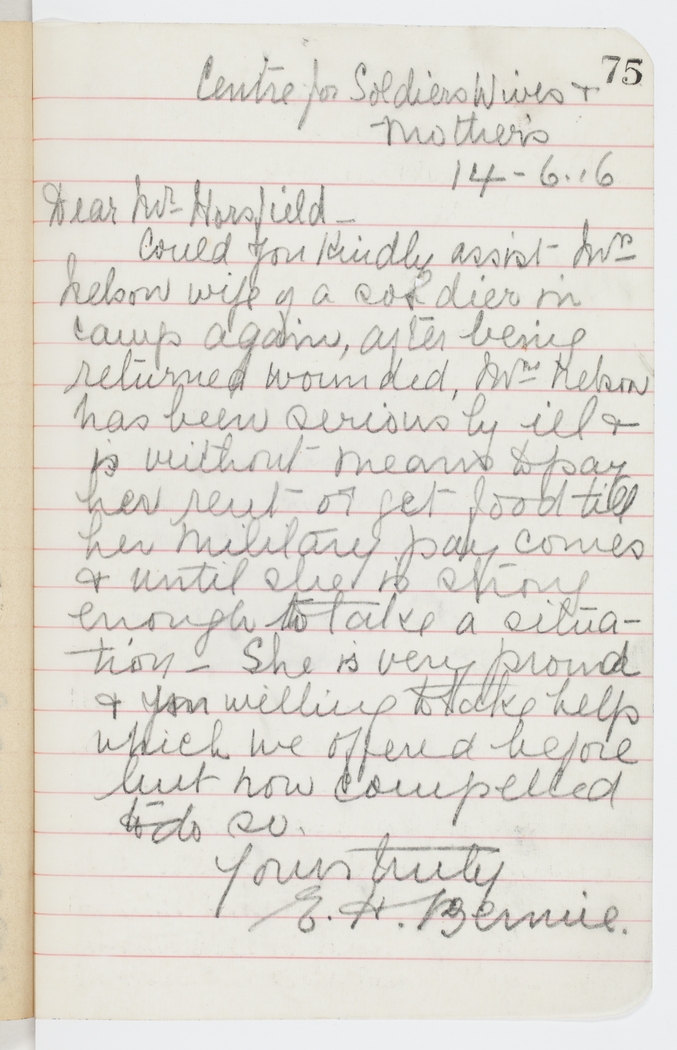 75
Centre for Soldiers Wives &
Mothers
14-6.16
Dear Mr Horsfield -
Could you kindly assist Mrs
Nelson wife of a soldier in
camp again, after being
returned wounded, Mrs Nelson
has been seriously ill &
is without means to pay
her rent or get food till
her military pay comes
& until she is strong
enough to take a situa-
tion - She is very proud
& willing to take help
which we offered before
but now compelled
to do so.
Yours truly
E. H. Bernie.